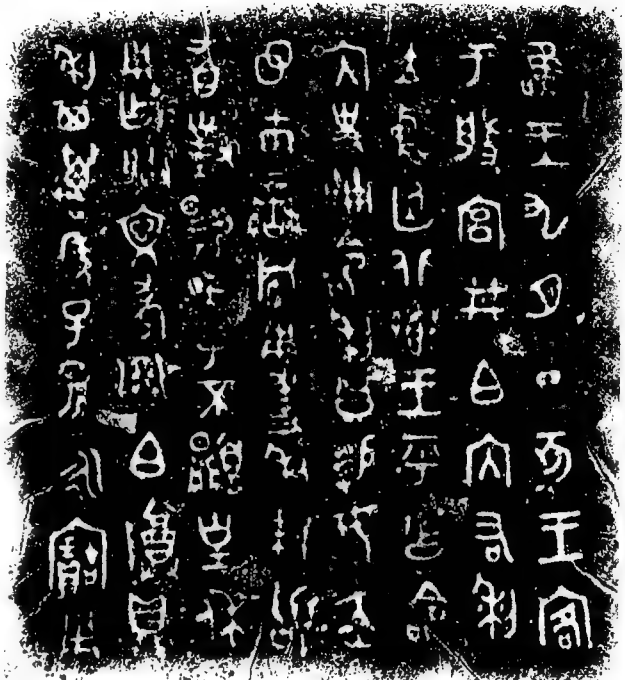 唯王九月丁亥王客
于般宮井白內右利
立中廷北鄉王乎乍命
內史冊命利曰易女赤
市䜌旂用事利拜稽
首對揚天子不顯皇休
用乍朕文考白尊鼎
利其萬年子孫永寶用